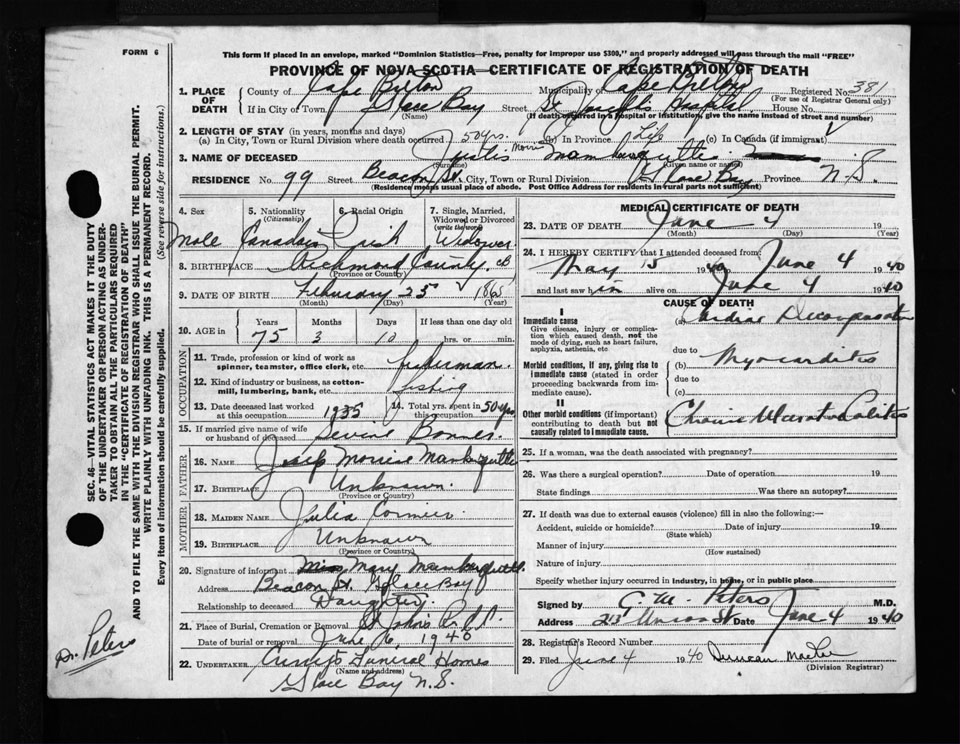 FORM 6
This form if placed in an envelope, marked "Dominion Statistics—Free, penalty for improper use $300," and properly addressed will pass through the mail "FREE"
PROVINCE OF NOVA SCOTIA—CERTIFICATE OF REGISTRATION OF DEATH
1. PLACE OF DEATH County of Cape Breton Municipality of Cape Breton Registered No. 381
(For use of Registrar General only)
If in City or Town Glace Bay Street St Joseph's Hospital House No.
(Name) (If death occurred in a hospital or institution, give the name instead of street and number)
2. LENGTH OF STAY (in years, months and days)
(a) In City, Town or Rural Division where death occurred 50 yrs. (b) In Province Life (c) In Canada (if immigrant)
3. NAME OF DECEASED
(Surname) (Given name or names)
RESIDENCE No. 99 Street Beacon St. City, Town or Rural Division Glace Bay Province N.S.
(Residence means usual place of abode. Post Office Address for residents in rural parts not sufficient)
4. Sex 5. Nationality (Citizenship) 6. Racial Origin 7. Single, Married, Widowed or Divorced (write the word)
Male Canadian Widower
8. BIRTHPLACE Richmond County. CB
(Province or County)
9. DATE OF BIRTH February 25 1865
(Month) (Day) (Year)
10. AGE in Years Months Days If less than one day old
75 3 10 hrs. or min.
OCCUPATION
11. Trade, profession or kind of work as spinner, teamster, office clerk, etc. fisherman
12. Kind of industry or business, as cotton-mill, lumbering, bank, etc. fishing
13. Date deceased last worked at this occupation 1935 14. Total yrs. spent in this occupation 50 yrs
15. If married give name of wife or husband of deceased
FATHER
16. NAME
17. BIRTHPLACE Unknown
(Province or Country)
MOTHER
18. MAIDEN NAME Julia Cormier
19. BIRTHPLACE Unknown
(Province or Country)
20. Signature of informant Miss Mary
Address Beacon St. Glace Bay
Relationship to deceased Daughter
21. Place of Burial, Cremation or Removal St John's
Date of burial or removal June 6 1940
22. UNDERTAKER Funeral Homes
(Name and address)
Glace Bay N.S.
MEDICAL CERTIFICATE OF DEATH
23. DATE OF DEATH June 4 19
(Month) (Day) (Year)
24. I HEREBY CERTIFY that I attended deceased from:
May 15 1940 to June 4 1940
and last saw him alive on June 4 1940
CAUSE OF DEATH
I
Immediate cause (a) Cardiac Decompensation
Give disease, injury or complication which caused death, not the mode of dying, such as heart failure, asphyxia, asthenia, etc
due to
Morbid conditions, if any, giving rise to immediate cause (stated in order proceeding backwards from immediate cause). (b) Myocarditis
due to
(c)
II
Other morbid conditions (if important) contributing to death but not causally related to immediate cause. Chronic Ulcerative Colitis
25. If a woman, was the death associated with pregnancy?
26. Was there a surgical operation? Date of operation 19
State findings Was there an autopsy?
27. If death was due to external causes (violence) fill in also the following:—
Accident, suicide or homicide? Date of injury 19
(State which)
Manner of injury
(How sustained)
Nature of injury
Specify whether injury occurred in industry, in home, or in public place
Signed by C. M. Peters M.D.
Address 213 Union St Date June 4 1940
28. Registrar's Record Number
29. Filed June 4 1940 Duncan
(Division Registrar)
SEC. 46—VITAL STATISTICS ACT MAKES IT THE DUTY
OF THE UNDERTAKER OR PERSON ACTING AS UNDER-
TAKER TO OBTAIN ALL THE PARTICULARS REQUIRED
IN THE "CERTIFICATE OF REGISTRATION OF DEATH"
AND TO FILE THE SAME WITH THE DIVISION REGISTRAR WHO SHALL ISSUE THE BURIAL PERMIT.
WRITE PLAINLY WITH UNFADING INK. THIS IS A PERMANENT RECORD.
Every item of information should be carefully supplied. (See reverse side for instructions.)
Dr. Peters